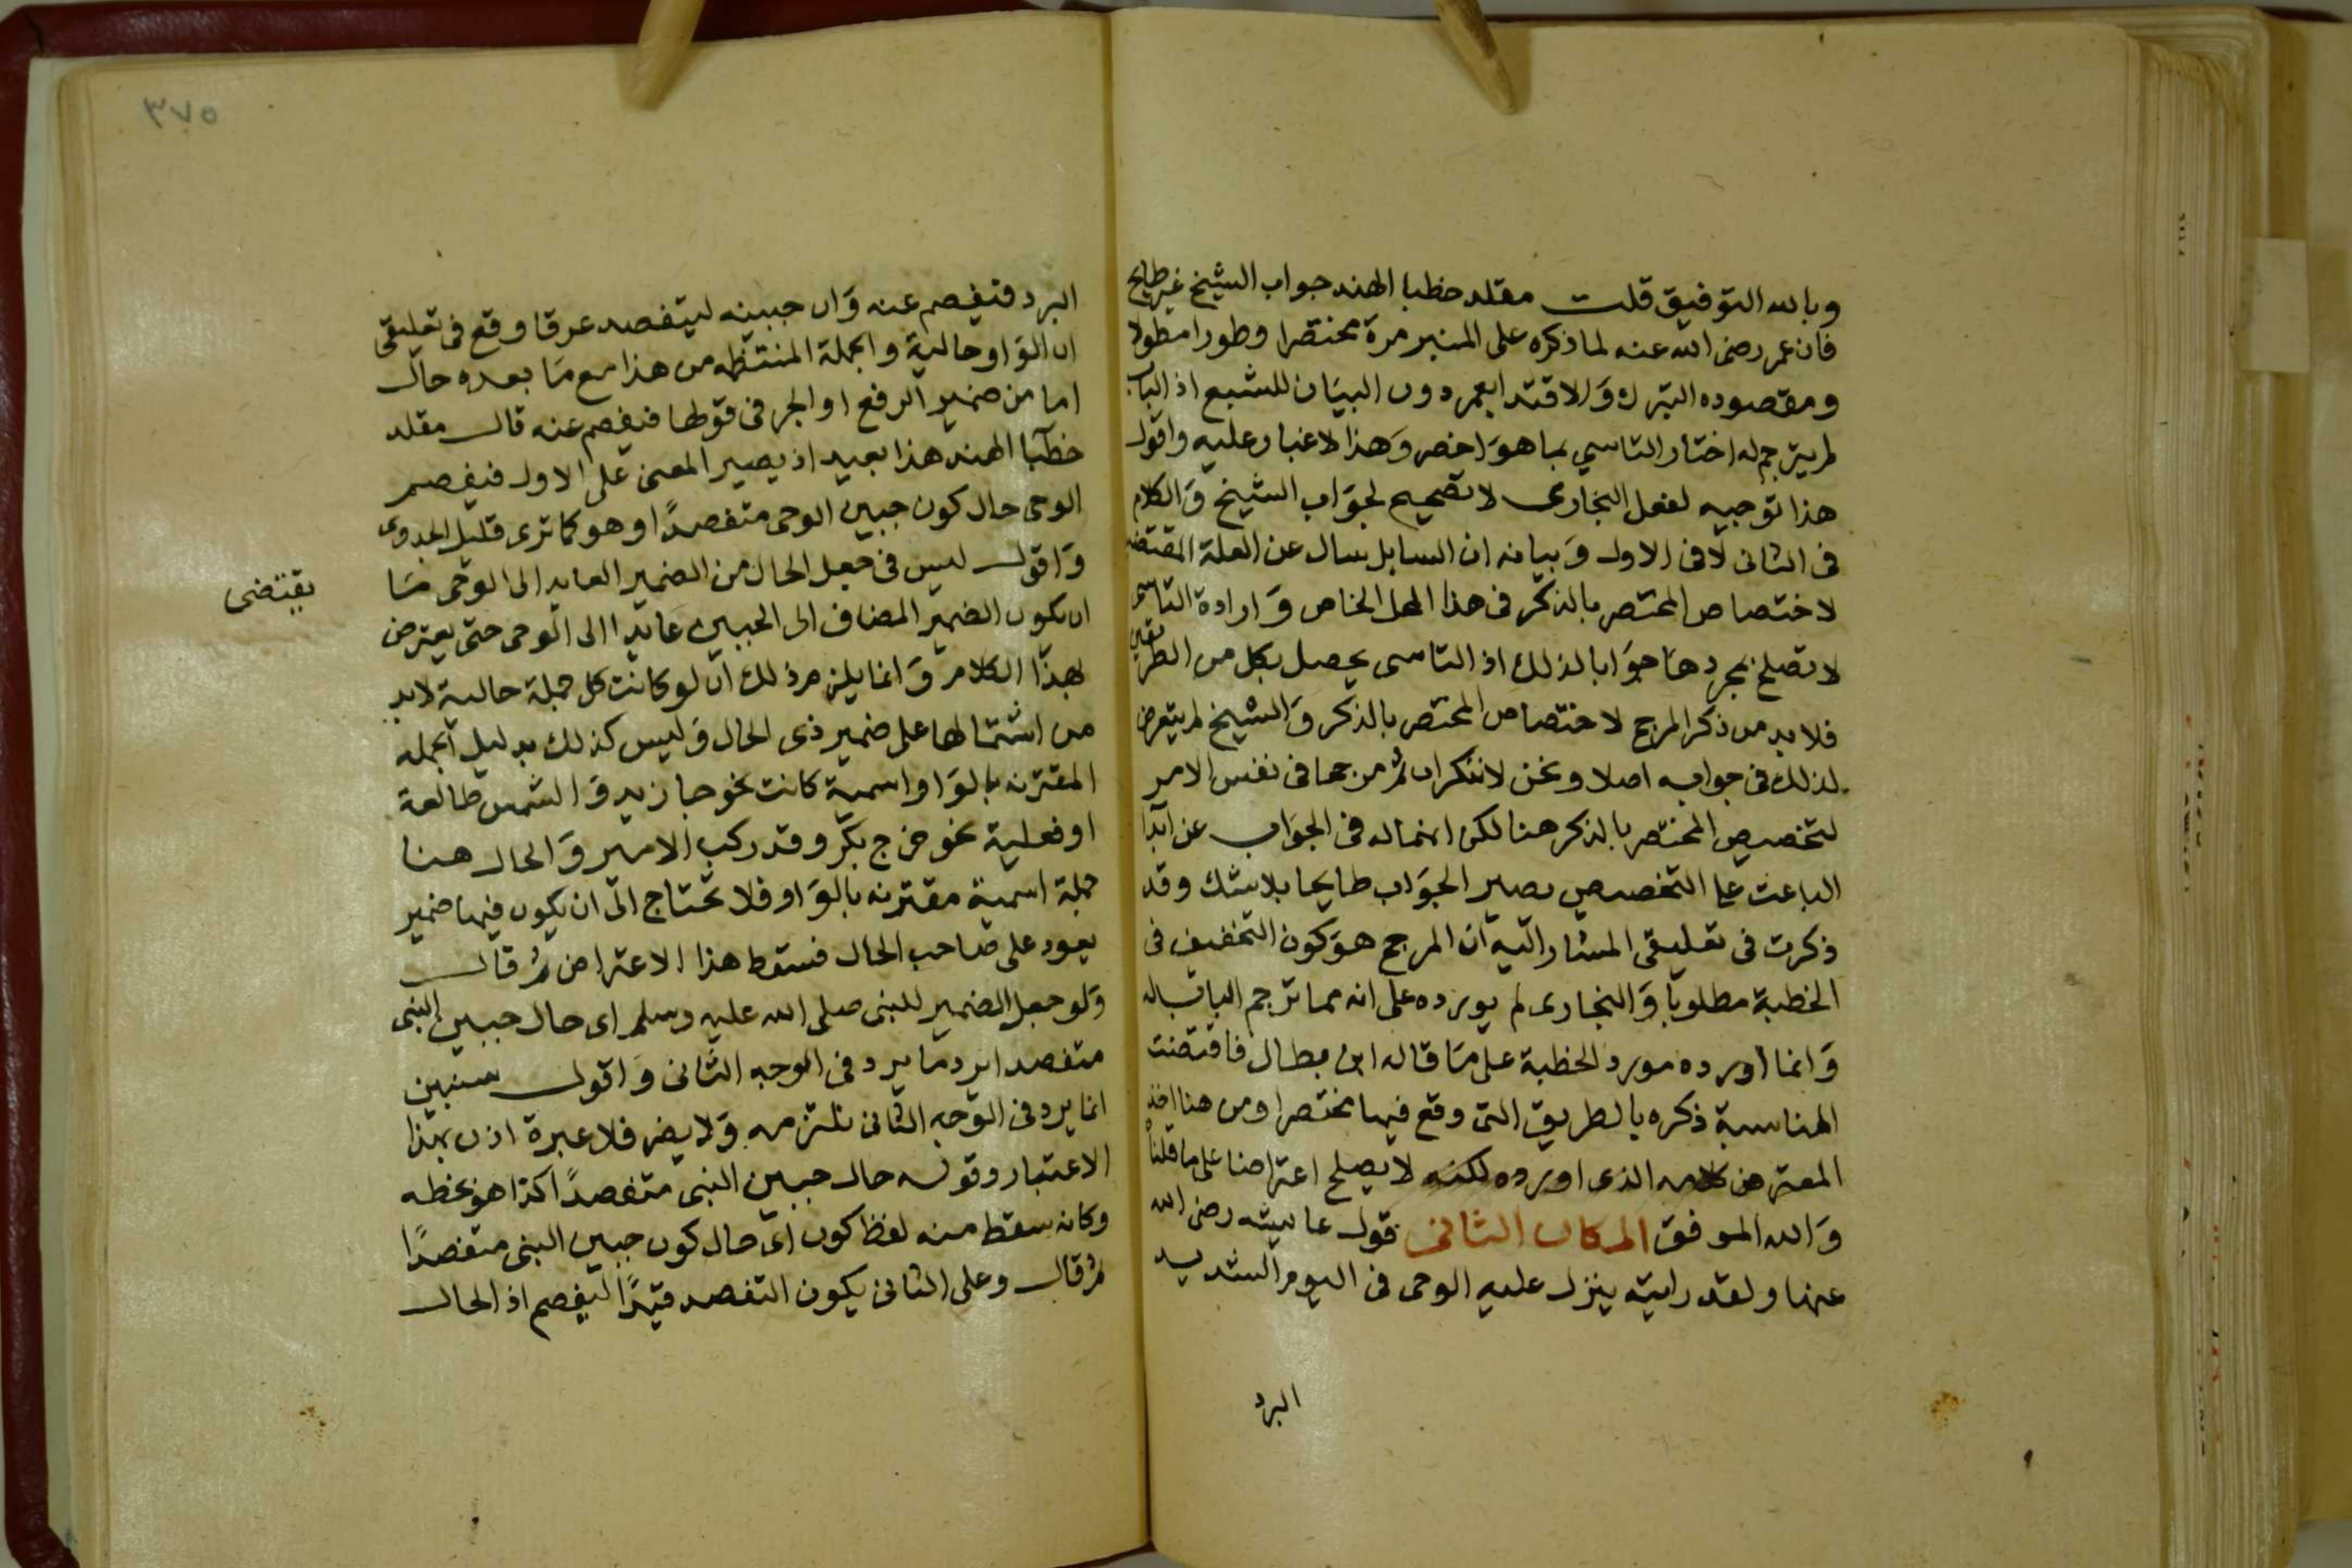 وبالله التوفيق قلت مقلد خطبا الهند جواب الشيخ غير طايح
فان عمر رضى الله عنه لما ذكره على المنبر مرة مختصرا وطورا مطولا
ومقصوده التبرك وَالاقتدا بعمر دون البيَان للشبع اذ الباب
لم يترجم له اختار التاسي بما هوَ اخصر وَهذا لا غبار عليه واقول
هذا توجيه لفعل البخارى لا تصحيح لجوَاب الشيخ وَالكلام
فى الثانى لا فى الاول وَبيانه ان السايل سال عن العلة المقتضيه
لاختصاص المختصر بالذكر فى هذا المحل الخاص وَارادة التاسى
لا تصلح بمجردهَا جوَابا لذلك اذ التاسى يحصل بكل من الطريقين
فلا بد من ذكر المرجح لاختصاص المختصر بالذكر وَالشيخ لم يتعرض
لذلك فى جوابه اصلا ونحن لا ننكر ان ثم مرجحا فى نفس الامر
لتخصيص المختصر بالذكر هنا لكن اهماله فى الجوَاب عن ابدا
الباعث على التخصيص يصير الجوَاب طايحا بلا شك وقد
ذكرت فى تعليقى المشار اليه ان المرجح هوَ كون التخفيف فى
الخطبة مطلوبا وَالبخارى لم يورده على انه مما ترجم الباب له
وَانما اورده مورد الخطبة على مَا قاله ابن بطال فاقتضت
المناسبة ذكره بالطريق التى وقع فيها مختصرا ومن هنا اخذ
المعترض كلامه الذى اورده لكنه لا يصلح اعتراضا على ما قلناه
وَالله الموفق المكان الثانى قول عايشه رضى الله
عنها ولقد رايته ينزل عليه الوحى فى اليوم الشديد
البرد
٣٧٥
البرد فيفصم عنه وَان جبينه ليتفصد عرقا وقع فى تعليقى
ان الوَاو حالية والجملة المنتظمه من هذا مع مَا بعده حال
اما من ضمير الرفع او الجر فى قولها فيفصم عنه قال مقلد
خطبا الهند هذا بعيد اذ يصير المعنى على الاول فيفصم
الوحى حال كون جبين الوحى متفصدًا وهو كما ترى قليل الجدوى
وَاقول ليس فى جعل الحال من الضمير العايد الى الوحى مَا
يقتضى
ان يكون الضمير المضاف الى الجبين عَايدا الى الوحى حتى يعترض
بهذا الكلام وَانما يلزم ذلك ان لو كانت كل جملة حالية لا بد
من اشتمالها على ضمير ذى الحال وَليس كذلك بدليل الجمله
المقترنه بالوَاو اسمية كانت نحو جا زيد وَالشمس طالعة
او فعلية نحو خرج بكر وقد ركب الامير وَالحال هنا
جملة اسمية مقترنه بالوَاو فلا تحتاج الى ان يكون فيها ضمير
يعود على صَاحب الحال فسقط هذا الاعتراض ثم قال
وَلو جعل الضمير للنبى صلى الله عليه وسلم اى حال جبين النبى
متفصدا يرد مَا يرد فى الوجه الثانى وَاقول سنبين
انما يرد فى الوَجه الثانى نلتزمه وَلا يضر فلا عبرة اذن بهذا
الاعتبار وقوله حال جبين النبى متفصدًا كذا هو بخطه
وكانه سقط منه لفظ كون اى حال كون جبين النبى متفصدًا
ثم قال وعلى الثانى يكون التفصد قيدًا ليفصم اذ الحال